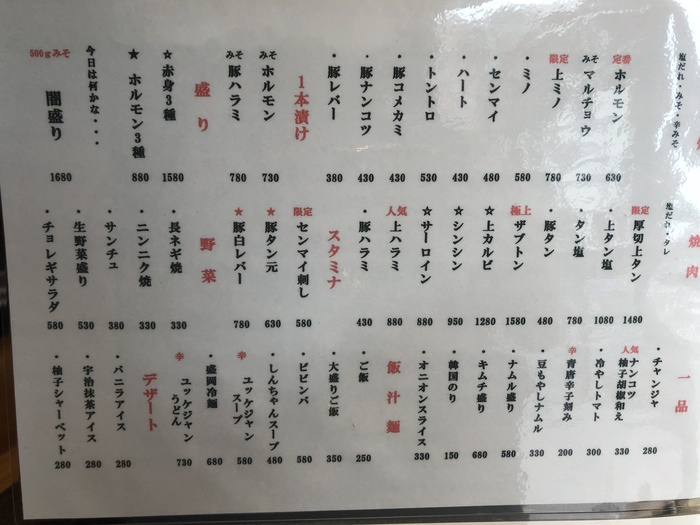 塩だれ・みそ・辛みそ
定番 ホルモン 630
みそ マルチョウ 730
限定 上ミノ 780
・ミノ 580
・センマイ 480
・ハート 430
・トントロ 530
・豚コメカミ 430
・豚ナンコツ 430
・豚レバー 380
1本漬け
みそ ホルモン 730
みそ 豚ハラミ 780
盛り
☆赤身3種 1580
★ホルモン3種 880
今日は何かな・・・
500gみそ 闇盛り 1680
焼肉
塩だれ・タレ
限定 厚切上タン 1480
・上タン塩 1080
・タン塩 780
・豚タン 480
極上 ザブトン 1580
☆上カルビ 1280
☆シンシン 950
☆サーロイン 880
人気 上ハラミ 880
・豚ハラミ 430
スタミナ
限定 センマイ刺し 580
★豚タン元 630
★豚白レバー 780
野菜
・長ネギ焼 330
・ニンニク焼 330
・サンチュ 380
・生野菜盛り 530
・チョレギサラダ 580
一品
・チャンジャ 280
人気 ナンコツ
柚子胡椒和え 330
・冷やしトマト 300
辛 青唐辛子刻み 200
・豆もやしナムル 330
・ナムル盛り 580
・キムチ盛り 680
・韓国のり 150
・オニオンスライス 330
飯汁麺
・ご飯 250
・大盛りご飯 350
・ビビンバ 580
・しんちゃんスープ 480
辛 ユッケジャン
スープ 580
・盛岡冷麺 680
辛 ユッケジャン
うどん 730
デザート
・バニラアイス 280
・宇治抹茶アイス 280
・柚子シャーベット 280